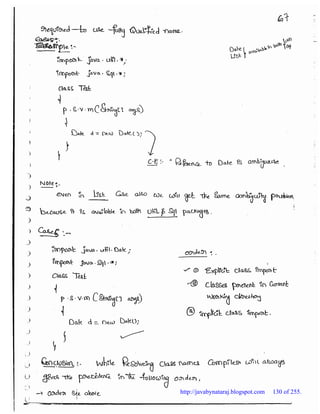 67
required to use fully Qualified name.
Cases:-
Example :-
Date } available in both
List } pkg
import java.util.*;
import java.sql.*;
class Test
{
p.s.v.m(String[] args)
{
Date d = new Date();
}
}
C.E :- Reference to Date is ambiguous.
Note:-
even in List Case also we will get the Same ambiguity problem
because it is available in both Util & Sql packages.
Case6 :-
import java.util.Date;
import java.sql.*;
class Test
{
p.s.v.m(String[] args)
{
Date d = new Date();
}
}
order :-
① Explicit class import
② Classes present in Current
working directory
③ implicit class import.
Conclusion :- While Resolving class names Compiler will always
gives the precedence in the following order,
→ order See above
http://javabynataraj.blogspot.com 130 of 255.